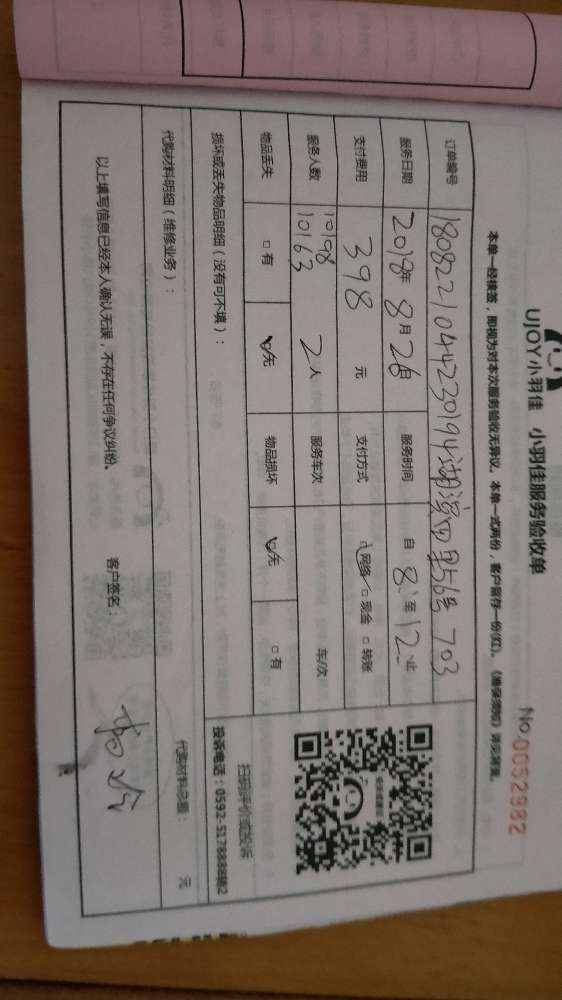 UJOY小羽佳 小羽佳服务验收单
No.0052982
本单一经接签，即视为对本次服务验收无异议。本单一式两份，客户留存一份(红)。
订单编号 180822104423019 湖滨四里56号 703
服务日期 2018年8月26日 服务时间 自8:至12:止
支付费用 398元 支付方式 网络 □现金 □转账
服务人数 10198 10163 2人 服务车次 车/次
物品丢失 □有 无 物品损坏 无 □有
扫码评价或投诉
损坏或丢失物品明细（没有可不填）：
投诉电话：0592-5178888转2
代购材料明细（维修业务）：
代购材料总量： 元
以上填写信息已经本人确认无误，不存在任何争议纠纷。
客户签名：